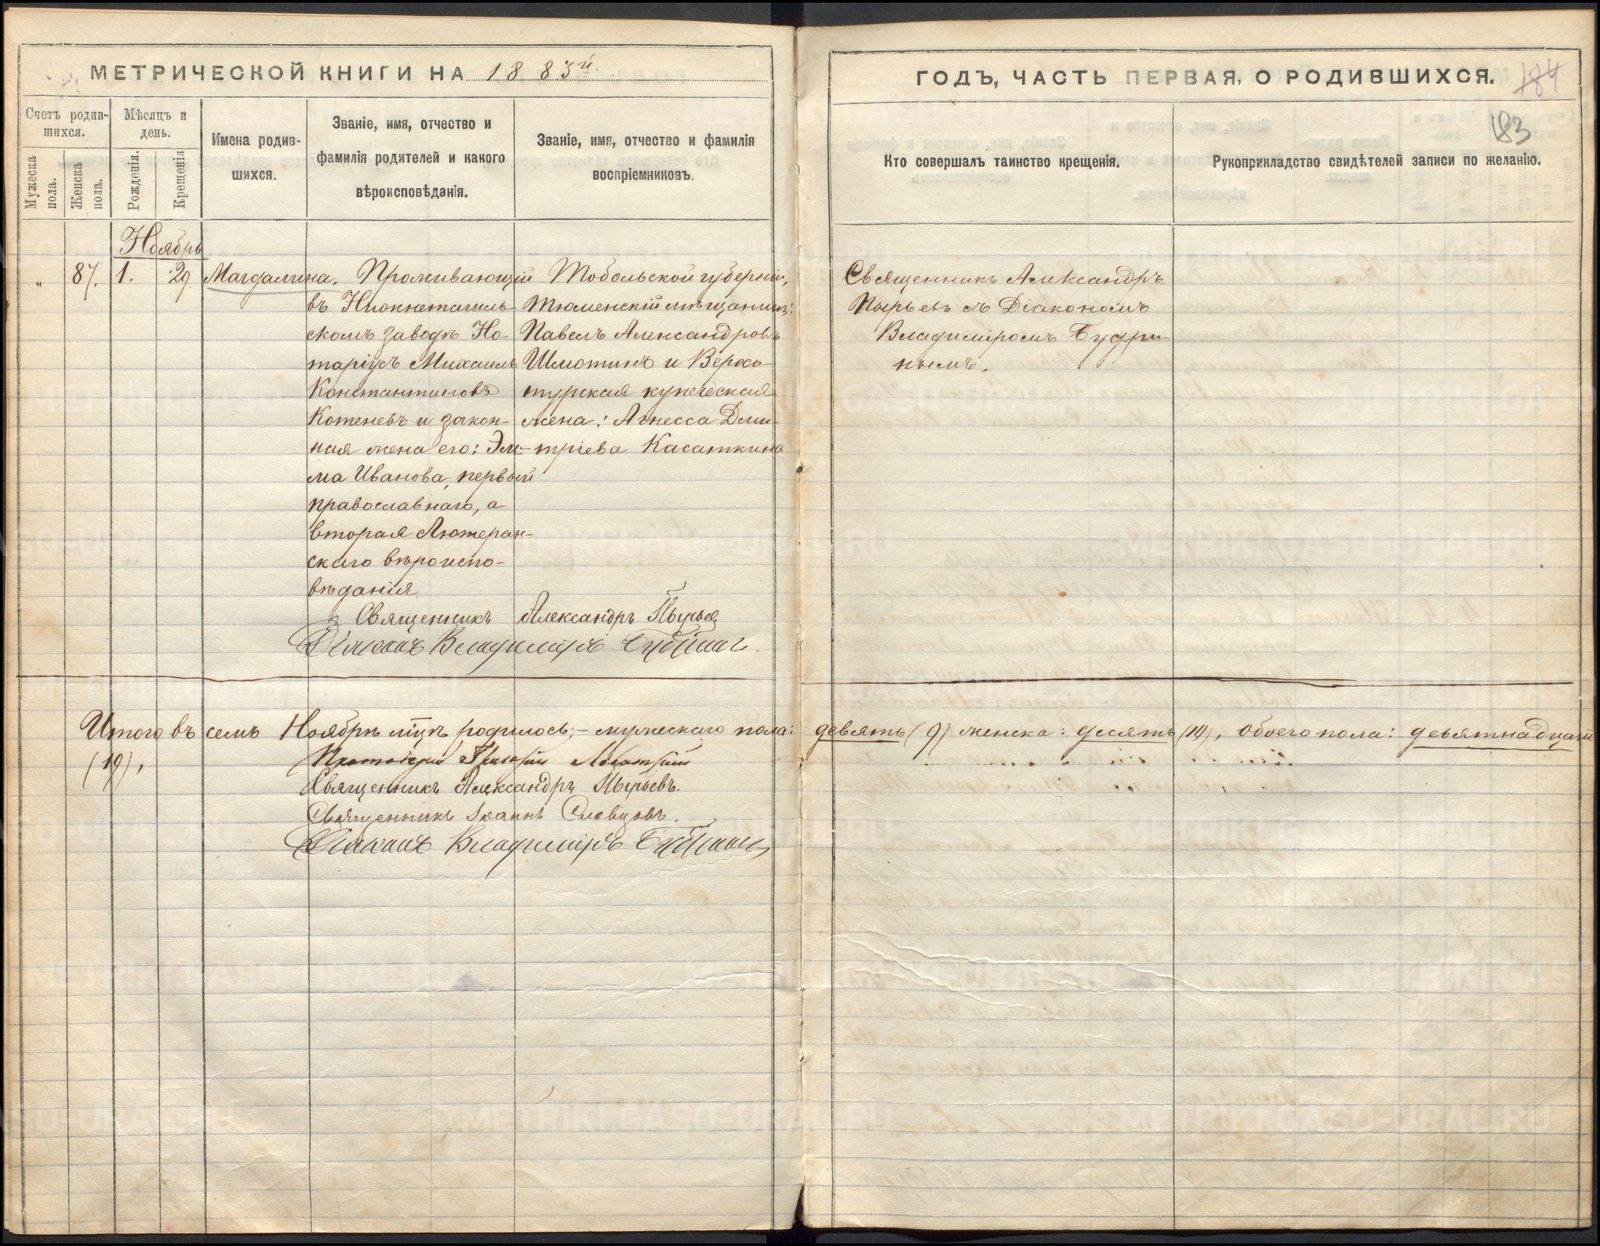 МЕТРИЧЕСКОЙ КНИГИ НА 1883й.
ГОДЪ, ЧАСТЬ ПЕРВАЯ, О РОДИВШИХСЯ.
184
183
Счетъ родившихся.
Мужеска пола.
Женска пола.
Мѣсяцъ и день.
Рожденія.
Крещенія
Имена родившихся.
Званіе, имя, отчество и
фамилія родителей и какого
вѣроисповѣданія.
Званіе, имя, отчество и фамилія
воспріемниковъ.
Кто совершалъ таинство крещенія.
Рукоприкладство свидѣтелей записи по желанію.
Ноябрь
87. 1. 29 Магдалина.
Проживающій
въ Нижнетагиль-
скомъ заводѣ Но-
таріусъ Михаилъ
Константиновъ
Котеневъ и закон-
ная жена его: Эм-
ма Иванова, первый
православнаго, а
вторая Лютеран-
скаго вѣроиспо-
вѣданія.
Тобольской губерніи,
Тюменскій мѣщанинъ:
Павелъ Александровъ
Шмотинъ и Верхо-
турская купеческая
жена: Агнесса Дми-
тріева Касаткина
Священникъ Александръ
Пырьевъ съ Діакономъ
Владиміромъ Будри-
нымъ.
Священникъ Александръ Пырьев
Діаконъ Владиміръ Будринъ.
Итого въ семъ Ноябрѣ мцѣ родилось,- мужескаго пола: девять (9) женска: десять (10), обоего пола: девятнадцать
(19).
Протоіерей
Священникъ Александръ Пырьевъ.
Священникъ Іоаннъ Словцовъ.
Діаконъ Владиміръ Будринъ
METRIKI.GASO-URAL.RU